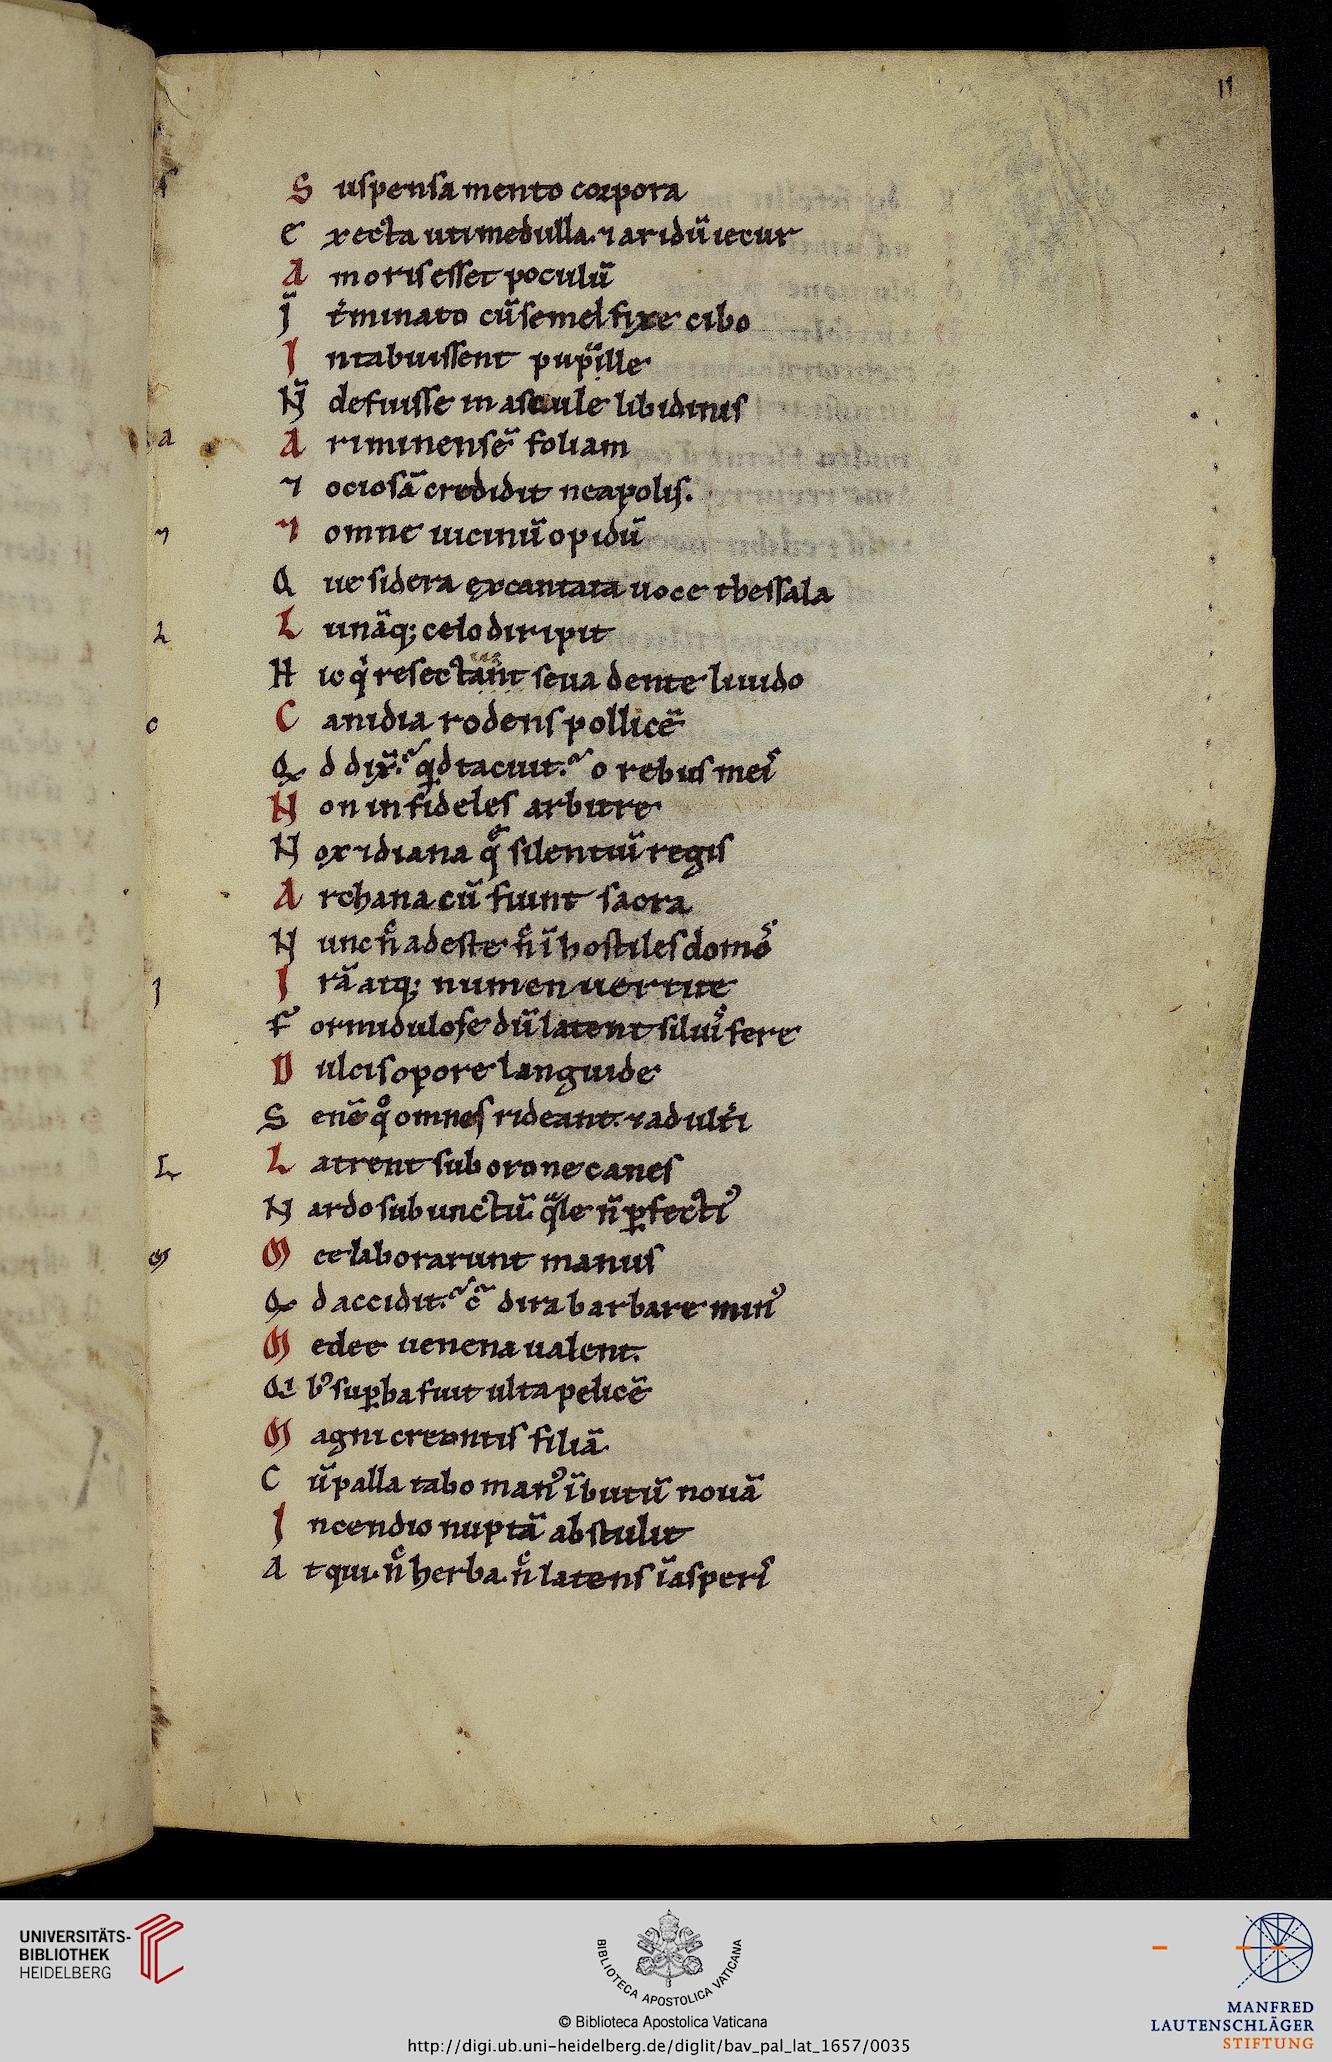 11
S uspensa mento corpora
E xecta uti medulla. ⁊ aridū iecur
A moris esset poculū
J̄ t̄minato cū semel fixe cibo
I ntabuissent pupille
N̄ defuisse mascule libidinis
a A riminensē foliam
⁊ ociosā credidit neapolis.
⁊ ⁊ omne uicinū opidū
Q ue sidera excantata uoce thessala
L L unāq; celo diripit
H ic seua dente liuido
c C anidia rodens pollicē
Q d dix̄. qd tacuit. o rebus meis
N on infideles arbitre
N ox ⁊ diana q̄ silentiū regis
A rchana cū fiunt sacra
N unc n̄c adeste n̄c ī hostiles domos
I I rā atq; numen uertite
F ormidulose dū latent siluis fere
D ulci sopore languide
S enē qo omnes rideant. ⁊ adult̄i
L L atrent suborone canes
N ardo sub unctū. qale n̄ ꝑfectiꝰ
M M ee laborarunt manus
Q d accidit. c̄ dira barbare minꝰ
M edee uenena ualent.
Qi bꝰ suꝑba fuit ulta pelicē
M agni creontis filiā.
C ū palla tabo manꝰ ībutū nouā
I ncendio nuptā abstulit
A tqui. n̄c herba. n̄c latens ī asperis
UNIVERSITÄTS-
BIBLIOTHEK
HEIDELBERG
BIBLIOTECA APOSTOLICA VATICANA
© Biblioteca Apostolica Vaticana
http://digi.ub.uni-heidelberg.de/diglit/bav_pal_lat_1657/0035
MANFRED
LAUTENSCHLÄGER
STIFTUNG